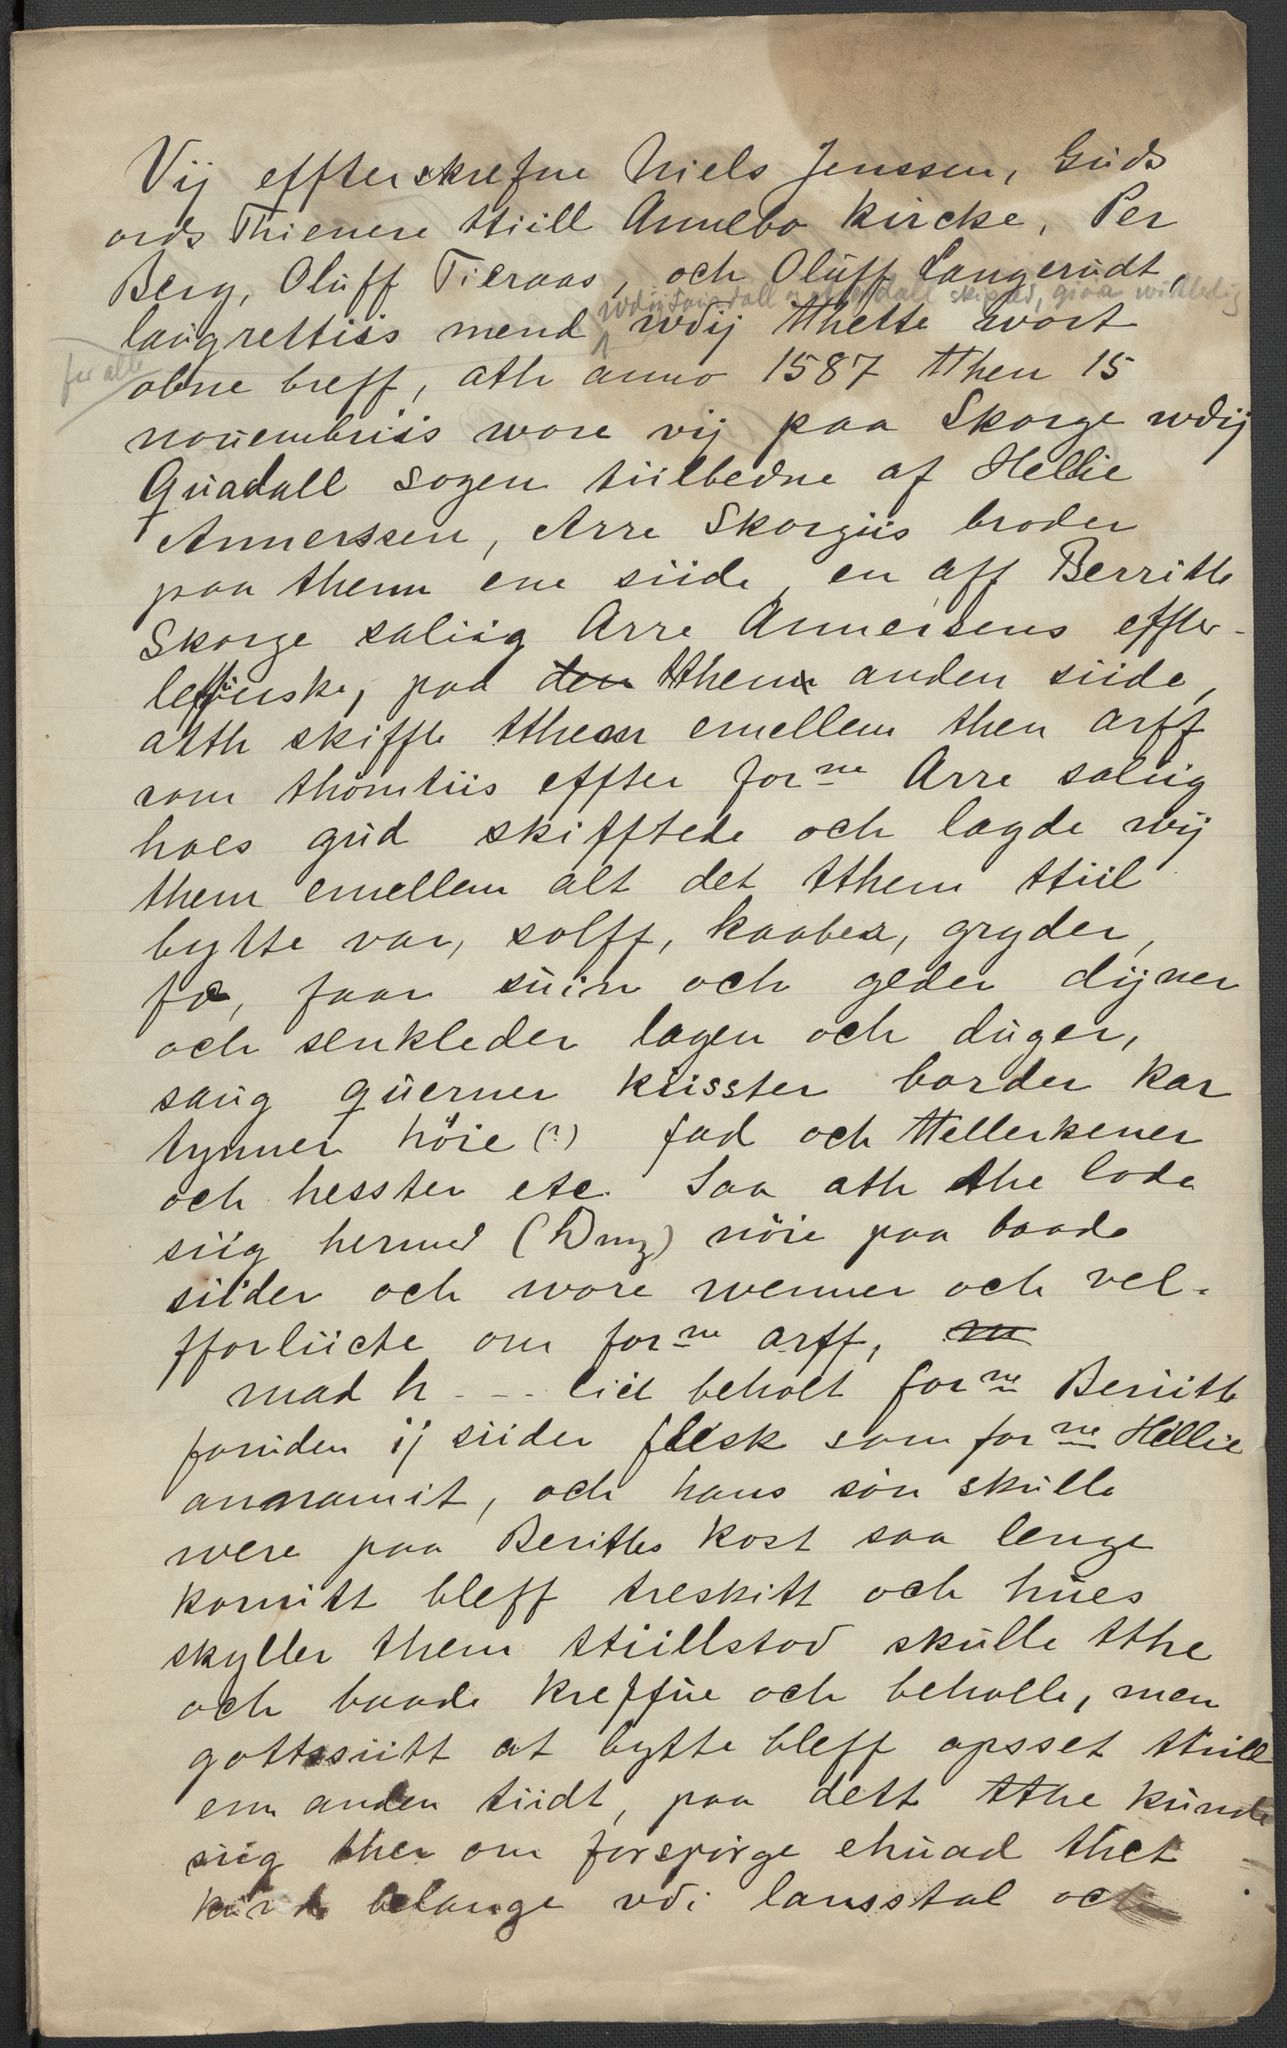 Vij effterskrefne Niels Jenssen, Guds
ords Thienere ttiill Annebo Kircke, Per
Berg, Oluff Tieraas, och Oluff Langerudt,
wdij Sandall skiprad, giøa witledig
laugrettiis mend wdij tthette wort
for alle
obne breff, ath anno 1587 tthen 15
nouembriis wore vij paa Skorge wdij
Quadall sogen tiilbedne af Hellie
Annerssen, Arre Skorgiis broder
paa thenn ene siide, en aff Berritte
Skorge saliig Arre Annersens effter-
leffuuske, paa den tthenn anden siide,
atth skiffte tthem emellem then arff
som thomtiis effter forne Arre saliig
hoes gud skifftede och lagde wij
them emellem alt det tthem ttiil
bytte var, solff, kaaber, gryder,
fæ, faar suin och geder dijner
och senkleder lagen och duger,
saug querner kiisster border kar
tynner höie (?) fad och ttellerkener
och hesster etc. Saa ath tthe lode
siig hermed (Dmz) nöie paa baade
siider och wore wenner och vel-
fforliicte om forne arff,
mad h - - - liil beholt forne Beriitte
foruden ij siider flesk som forne Hellie
annamit, och hans sön skulle
were paa Berittes kost saa lenge
kornitt bleff treskitt och hues
skyller them ttiillstod skulle tthe
och baade kreffue och beholle, men
gottssiitt at bytte bleff opsset ttiill
enn anden tiidt, paa dett tthe kunde
siig ther om forspörge ehuad thet
kunde belange vdi lansstal och